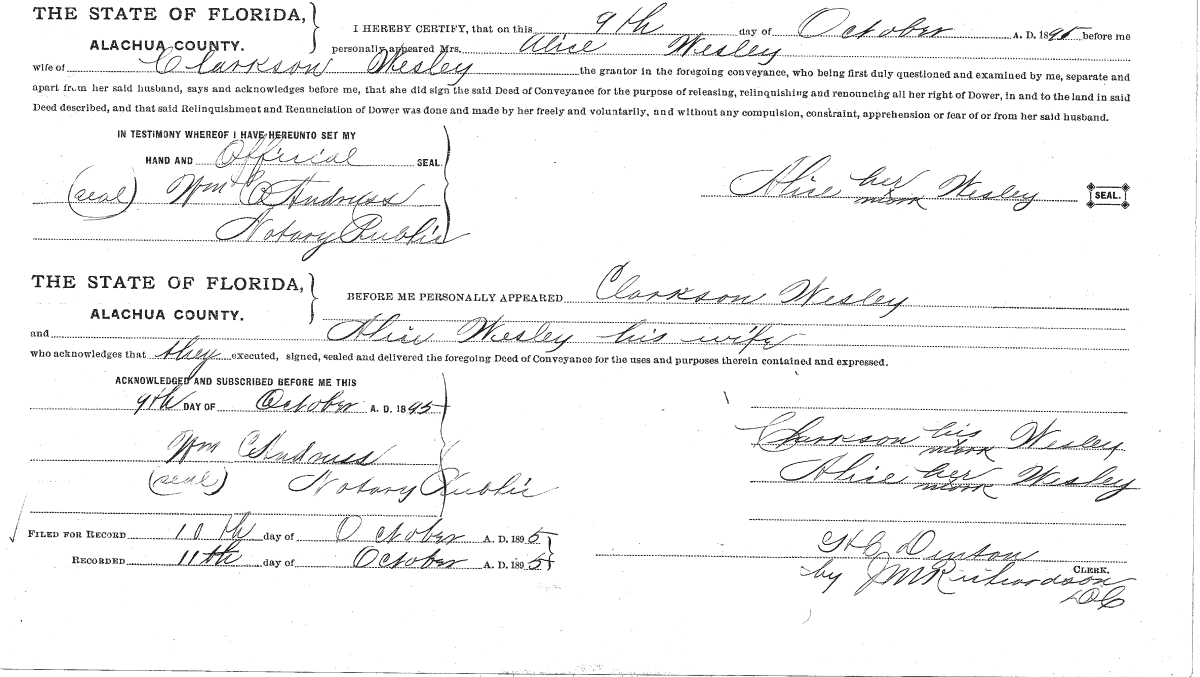 THE STATE OF FLORIDA,
ALACHUA COUNTY.
I HEREBY CERTIFY, that on this 9th day of October A. D. 1895 before me
personally appeared Mrs. Alice Wesley
wife of Clarkson Wesley the grantor in the foregoing conveyance, who being first duly questioned and examined by me, separate and
apart from her said husband, says and acknowledges before me, that she did sign the said Deed of Conveyance for the purpose of releasing, relinquishing and renouncing all her right of Dower, in and to the land in said
Deed described, and that said Relinquishment and Renunciation of Dower was done and made by her freely and voluntarily, and without any compulsion, constraint, apprehension or fear of or from her said husband.
IN TESTIMONY WHEREOF I HAVE HEREUNTO SET MY
HAND AND Official SEAL.
(seal) Wm C Andruss
Notary Public
Alice her mark Wesley SEAL.
THE STATE OF FLORIDA,
ALACHUA COUNTY.
BEFORE ME PERSONALLY APPEARED Clarkson Wesley
and Alice Wesley his wife
who acknowledges that they executed, signed, sealed and delivered the foregoing Deed of Conveyance for the uses and purposes therein contained and expressed.
ACKNOWLEDGED AND SUBSCRIBED BEFORE ME THIS
9th DAY OF October A. D. 1895
Wm C Andruss
(seal) Notary Public
Clarkson his mark Wesley
Alice her mark Wesley
FILED FOR RECORD 10th day of October A. D. 1895
RECORDED 11th day of October A. D. 1895
Denton
CLERK.
by J M Richardson
DC